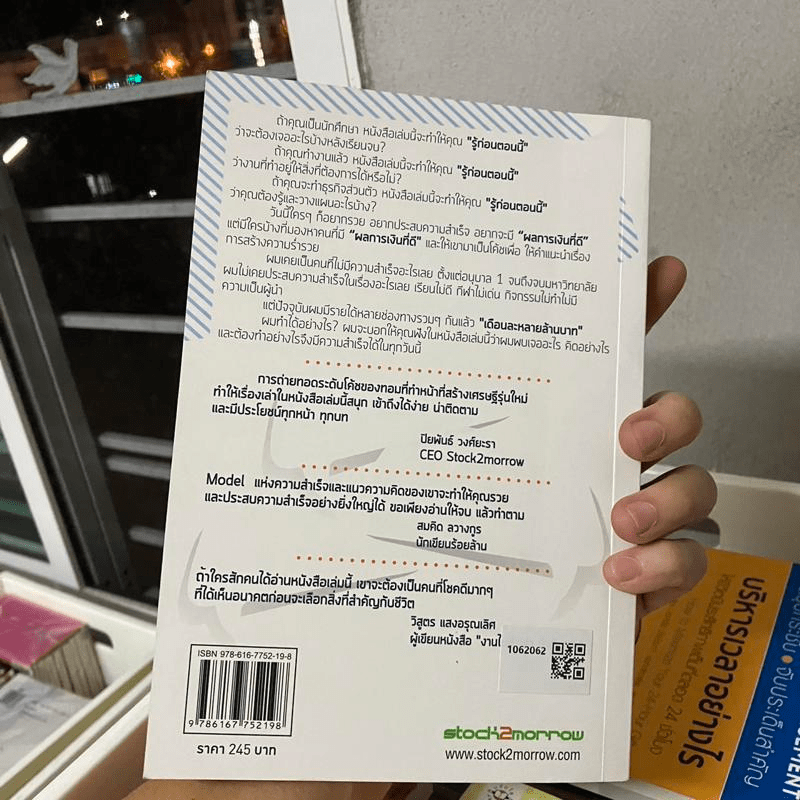 ถ้าคุณเป็นนักศึกษา หนังสือเล่มนี้จะทำให้คุณ "รู้ก่อนตอนนี้"
ว่าจะต้องเจออะไรบ้างหลังเรียนจบ?
ถ้าคุณทำงานแล้ว หนังสือเล่มนี้จะทำให้คุณ "รู้ก่อนตอนนี้"
ว่างานที่ทำอยู่ให้สิ่งที่ต้องการได้หรือไม่?
ถ้าคุณจะทำธุรกิจส่วนตัว หนังสือเล่มนี้จะทำให้คุณ "รู้ก่อนตอนนี้"
ว่าคุณต้องรู้และวางแผนอะไรบ้าง?
วันนี้ใครๆ ก็อยากรวย อยากประสบความสำเร็จ อยากจะมี "ผลการเงินที่ดี"
แต่มีใครบ้างที่มองหาคนที่มี "ผลการเงินที่ดี" และให้เขามาเป็นโค้ชเพื่อ ให้คำแนะนำเรื่อง
การสร้างความร่ำรวย
ผมเคยเป็นคนที่ไม่มีความสำเร็จอะไรเลย ตั้งแต่อนุบาล 1 จนถึงจบมหาวิทยาลัย
ผมไม่เคยประสบความสำเร็จในเรื่องอะไรเลย เรียนไม่ดี กีฬาไม่เด่น กิจกรรมไม่ทำไม่มี
ความเป็นผู้นำ
แต่ปัจจุบันผมมีรายได้หลายช่องทางรวมๆ กันแล้ว "เดือนละหลายล้านบาท"
ผมทำได้อย่างไร? ผมจะบอกให้คุณฟังในหนังสือเล่มนี้ว่าผมพบเจออะไร คิดอย่างไร
และต้องทำอย่างไรจึงมีความสำเร็จได้ในทุกวันนี้
การถ่ายทอดระดับโค้ชของทอมที่ทำหน้าที่สร้างเศรษฐีรุ่นใหม่
ทำให้เรื่องเล่าในหนังสือเล่มนี้สนุก เข้าถึงได้ง่าย น่าติดตาม
และมีประโยชน์ทุกหน้า ทุกบท
ปิยพันธ์ วงศ์ยะรา
CEO Stock2morrow
Model แห่งความสำเร็จและแนวความคิดของเขาจะทำให้คุณรวย
และประสบความสำเร็จอย่างยิ่งใหญ่ได้ ขอเพียงอ่านให้จบ แล้วทำตาม
สมคิด ลวางกูร
นักเขียนร้อยล้าน
ถ้าใครสักคนได้อ่านหนังสือเล่มนี้ เขาจะต้องเป็นคนที่โชคดีมากๆ
ที่ได้เห็นอนาคตก่อนจะเลือกสิ่งที่สำคัญกับชีวิต
วิสูตร แสงอรุณเลิศ
ผู้เขียนหนังสือ "งานไ
1062062
ISBN 978-616-7752-19-8
9 786167 752198
ราคา 245 บาท
stock2morrow
www.stock2morrow.com
บริหารเวลาอย่างไร